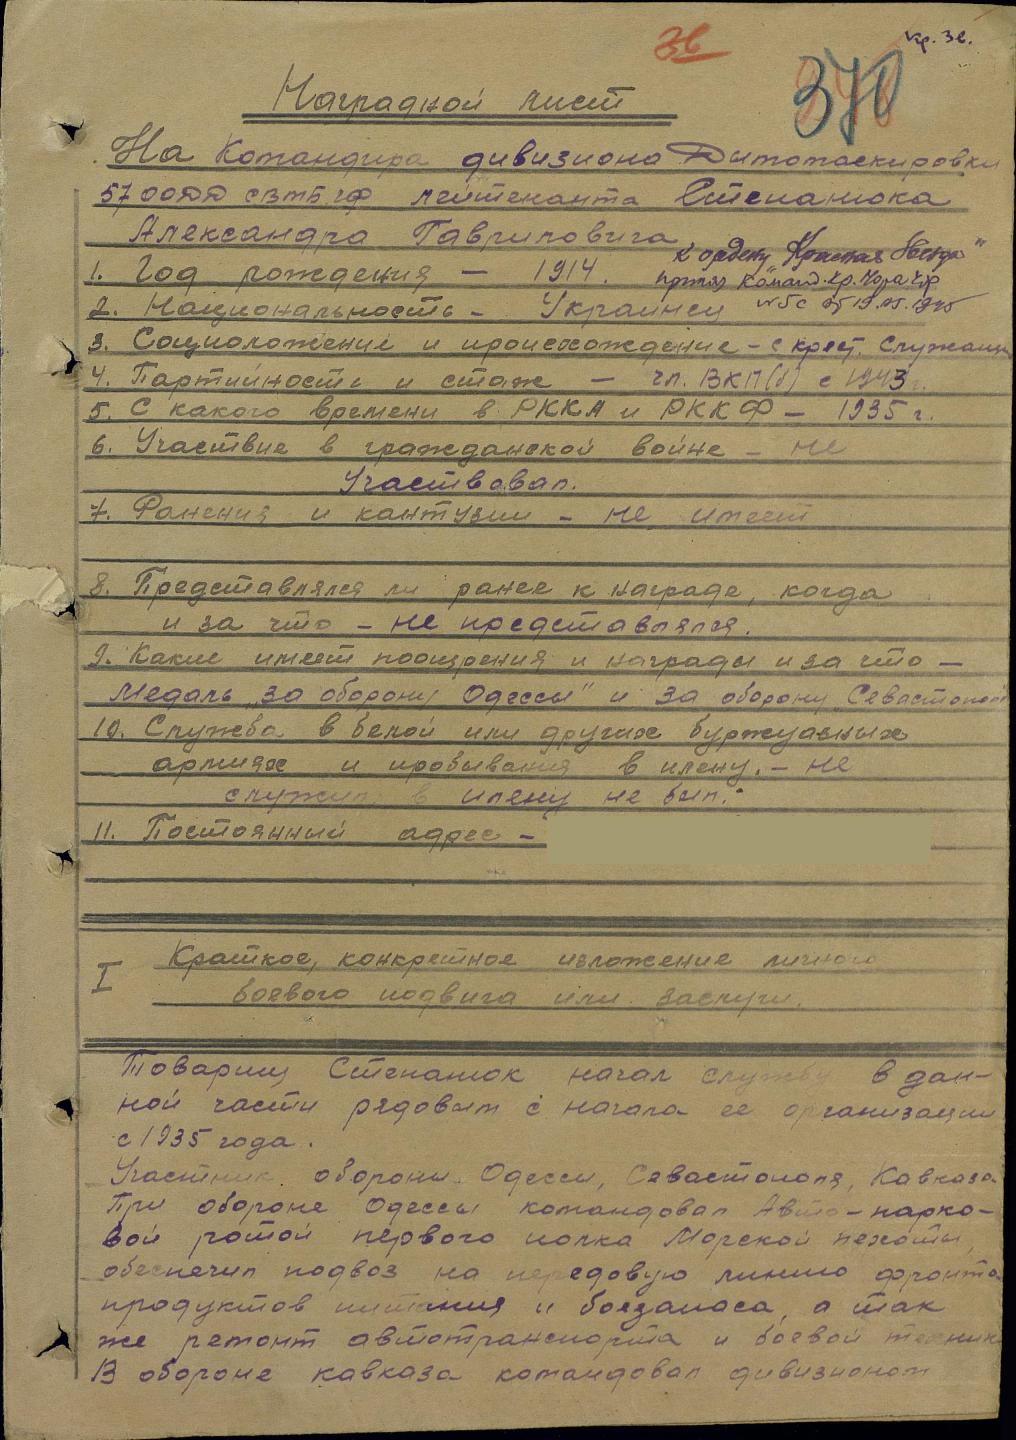 Зв
Кр. Зв.
370
Наградной лист
На Командира дивизиона Дымомаскировки
57 ООДД СВМБ ЧФ лейтенанта Степанюка
Александра Гавриловича
к ордену "Красная Звезда"
1. Год рождения – 1914.
приказ Команд. Кр. Чора ЧФ
2. Национальность – Украинец
№ 5с 19.05.1945
3. Социоложение и происхождение – с крест. Служащий
4. Партийность и стаж – чл. ВКП(б) с 1943 г.
5. С какого времени в РККА и РККФ – 1935 г.
6. Участвие в гражданской войне – не
Участвовал.
7. Ранения и кантузии – не имеет
8. Представлялся ли ранее к награде, когда
и за что – не представлялся.
9. Какие имеет поощрения и награды и за что –
Медаль „За оборону Одессы" и за оборону „Севастополя"
10. Служба в белой или других буржуазных
армиях и пробывания в плену. – не
служил в плену не был.
11. Постоянный адрес –
I Краткое, конкретное изложение личного
боевого подвига или заслуги.
Товарищ Степанюк начал службу в дан-
ной части рядовым с начала ее организации
с 1935 года.
Участник обороны Одессы, Севастополя, Кавказа
При обороне Одессы командовал Авто-парко-
вой ротой первого полка Морской пехоты,
обеспечил подвоз на передовую линию фронта
продуктов питания и боезапаса, а так
же ремонт автотранспорта и боевой техники
В обороне кавказа командовал дивизионом